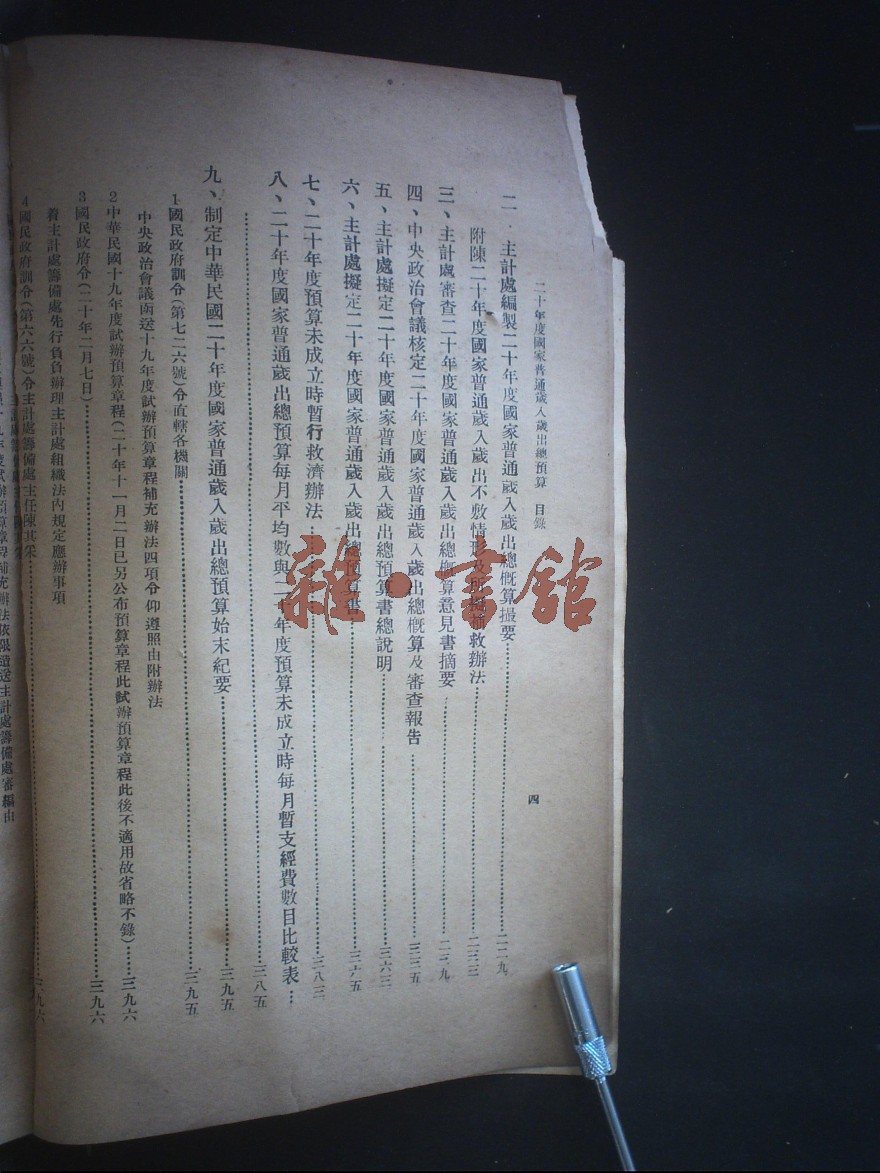 二十年度國家普通歲入歲出總預算 目錄
四
二、主計處編製二十年度國家普通歲入歲出總概算撮要……二二九
附陳二十年度國家普通歲入歲出不敷情形及所擬補救辦法……二三三
三、主計處審查二十年度國家普通歲入歲出總概算意見書摘要……二三九
四、中央政治會議核定二十年度國家普通歲入歲出總概算及審查報告……三三五
五、主計處擬定二十年度國家普通歲入歲出總預算書總說明……三六三
六、主計處擬定二十年度國家普通歲入歲出總預算書……三六五
七、二十年度預算未成立時暫行救濟辦法……三八三
八、二十年度國家普通歲出總預算每月平均數與二十年度預算未成立時每月暫支經費數目比較表…
……三八五
九、制定中華民國二十年度國家普通歲入歲出總預算始末紀要……三九五
1 國民政府訓令(第七二六號)令直轄各機關……三九五
中央政治會議函送十九年度試辦預算章程補充辦法四項令仰遵照由附辦法
2 中華民國十九年度試辦預算章程(二十年十一月二日已另公布預算章程此試辦預算章程此後不適用故省略不錄)……三九六
3 國民政府令(二十年二月七日)……三九六
着主計處籌備處先行負責辦理主計處組織法內規定應辦事項
4 國民政府訓令(第六六號)令主計處籌備處主任陳其采……三九六
年度試辦預算章程補充辦法依限遞送主計處籌備處審編由
雜·書館